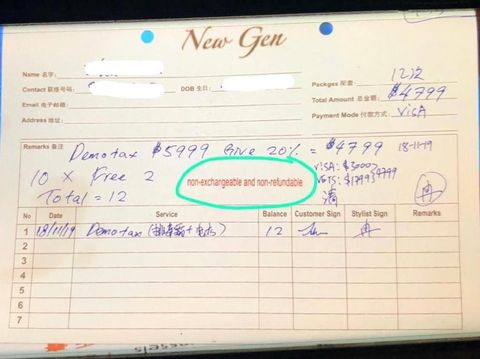 New Gen
Name 名字:
Contact 联络号码: DOB 生日:
Email 电子邮箱:
Address 地址:
Packges 配套:
Total Amount 总金额: $4799
Payment Mode 付款方式: VISA
Remarks 备注 Demotax $5999 Give 20% = $4799 18-11-19
10 x Free 2
VISA: $3000
NETS: $1799 $4799
Total = 12
non-exchangeable and non-refundable
No Date Service Balance Customer Sign Stylist Sign Remarks
1 18/11/19 Demotax 12
2
3
4
5
6
7